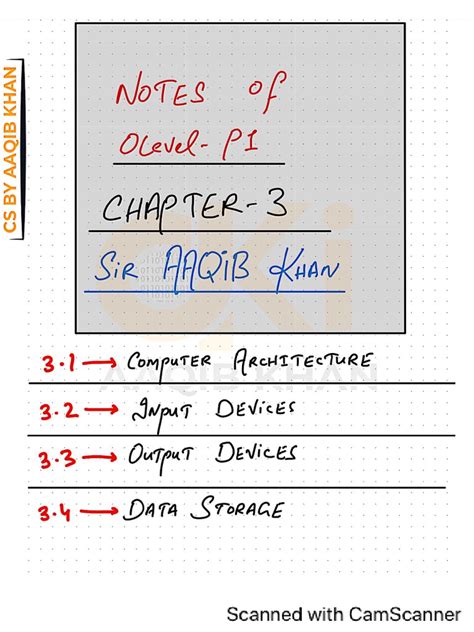 CS BY AAQIB KHAN
NOTES of
OLevel- P1
CHAPTER-3
SiR AAQiB KHAN
AAQIB KHAN
3.1 → COMPUTER ARCHITECTURE
3.2 → INPUT DEVICES
3.3 → OUTPUT DEVICES
3.4 → DATA STORAGE
Scanned with CamScanner